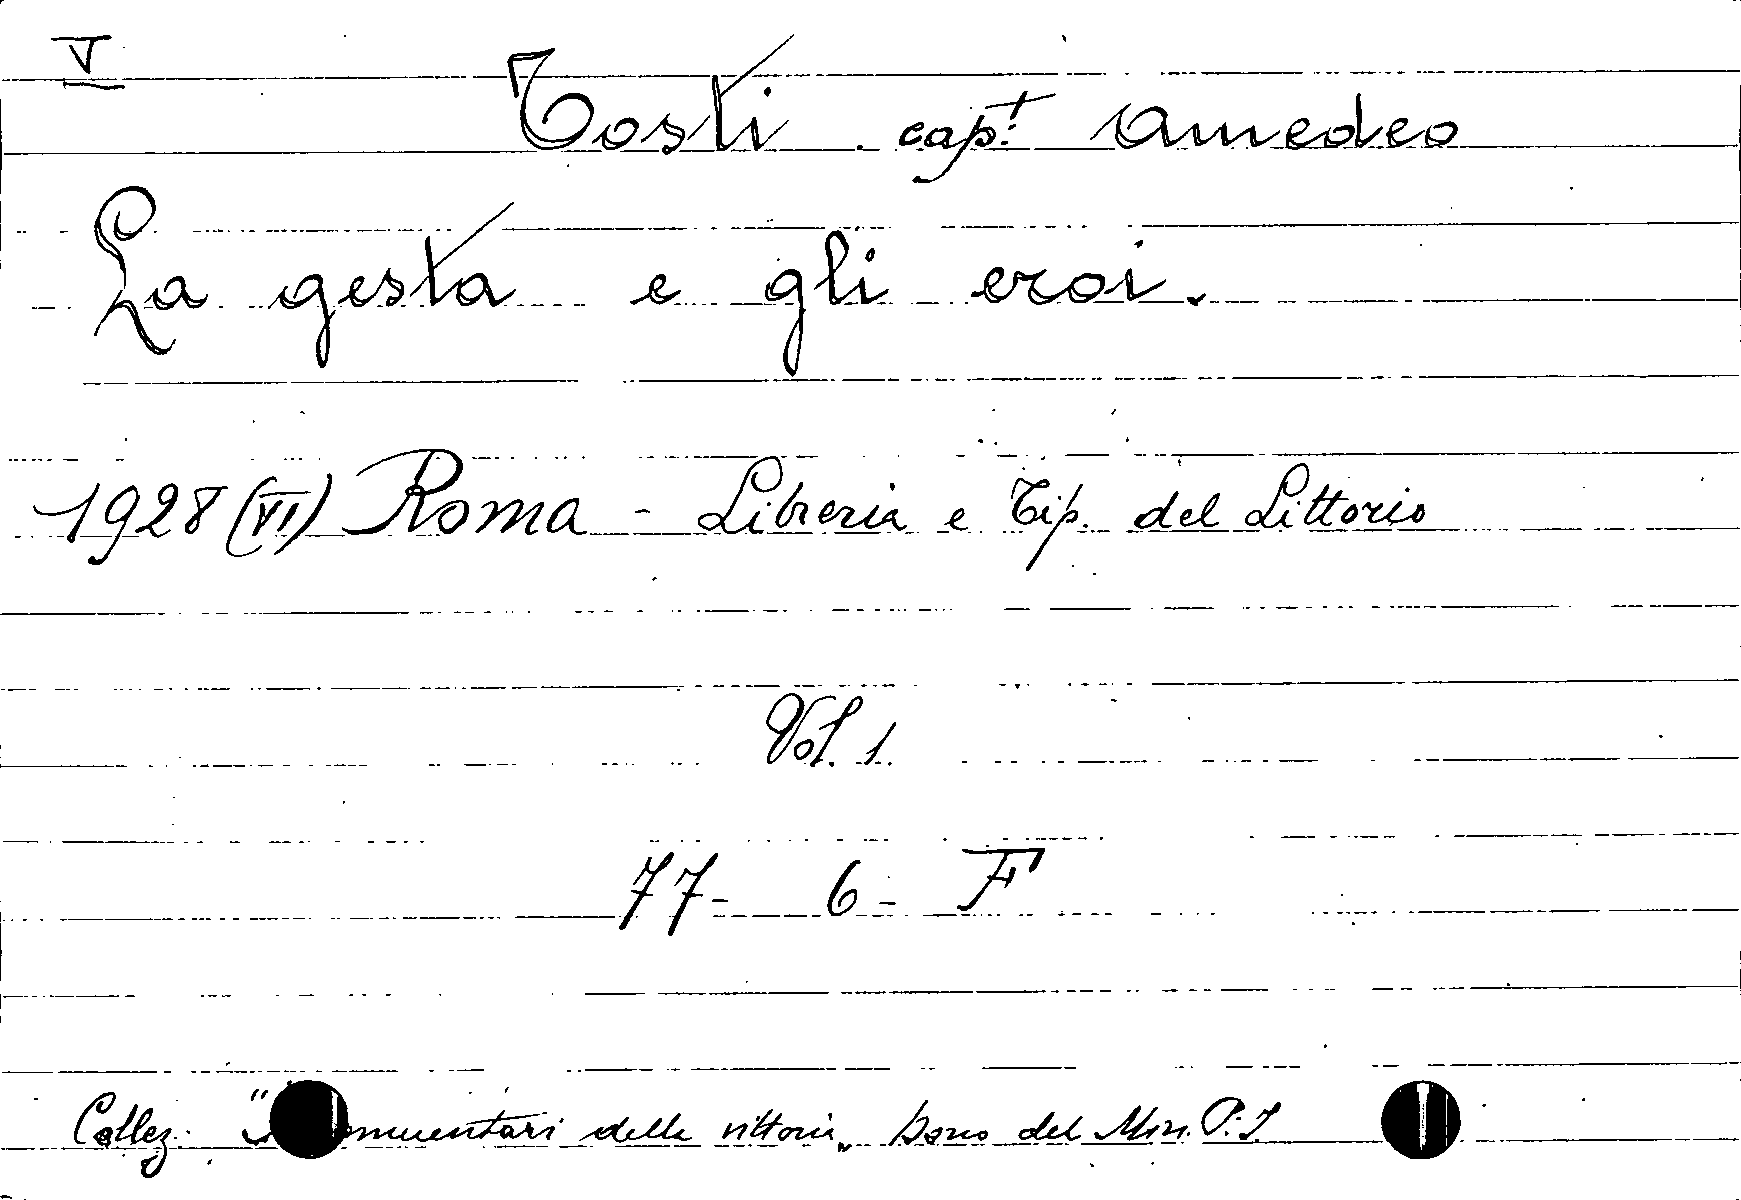 V
Tosti cap.t Amedeo
La gesta e gli eroi.
1928 (VI) Roma - Libreria e Tip. del Littorio
Vol. 1.
77 - 6 - F
Collez. " mmentari della vittoria„ Dono del Min. P. I.